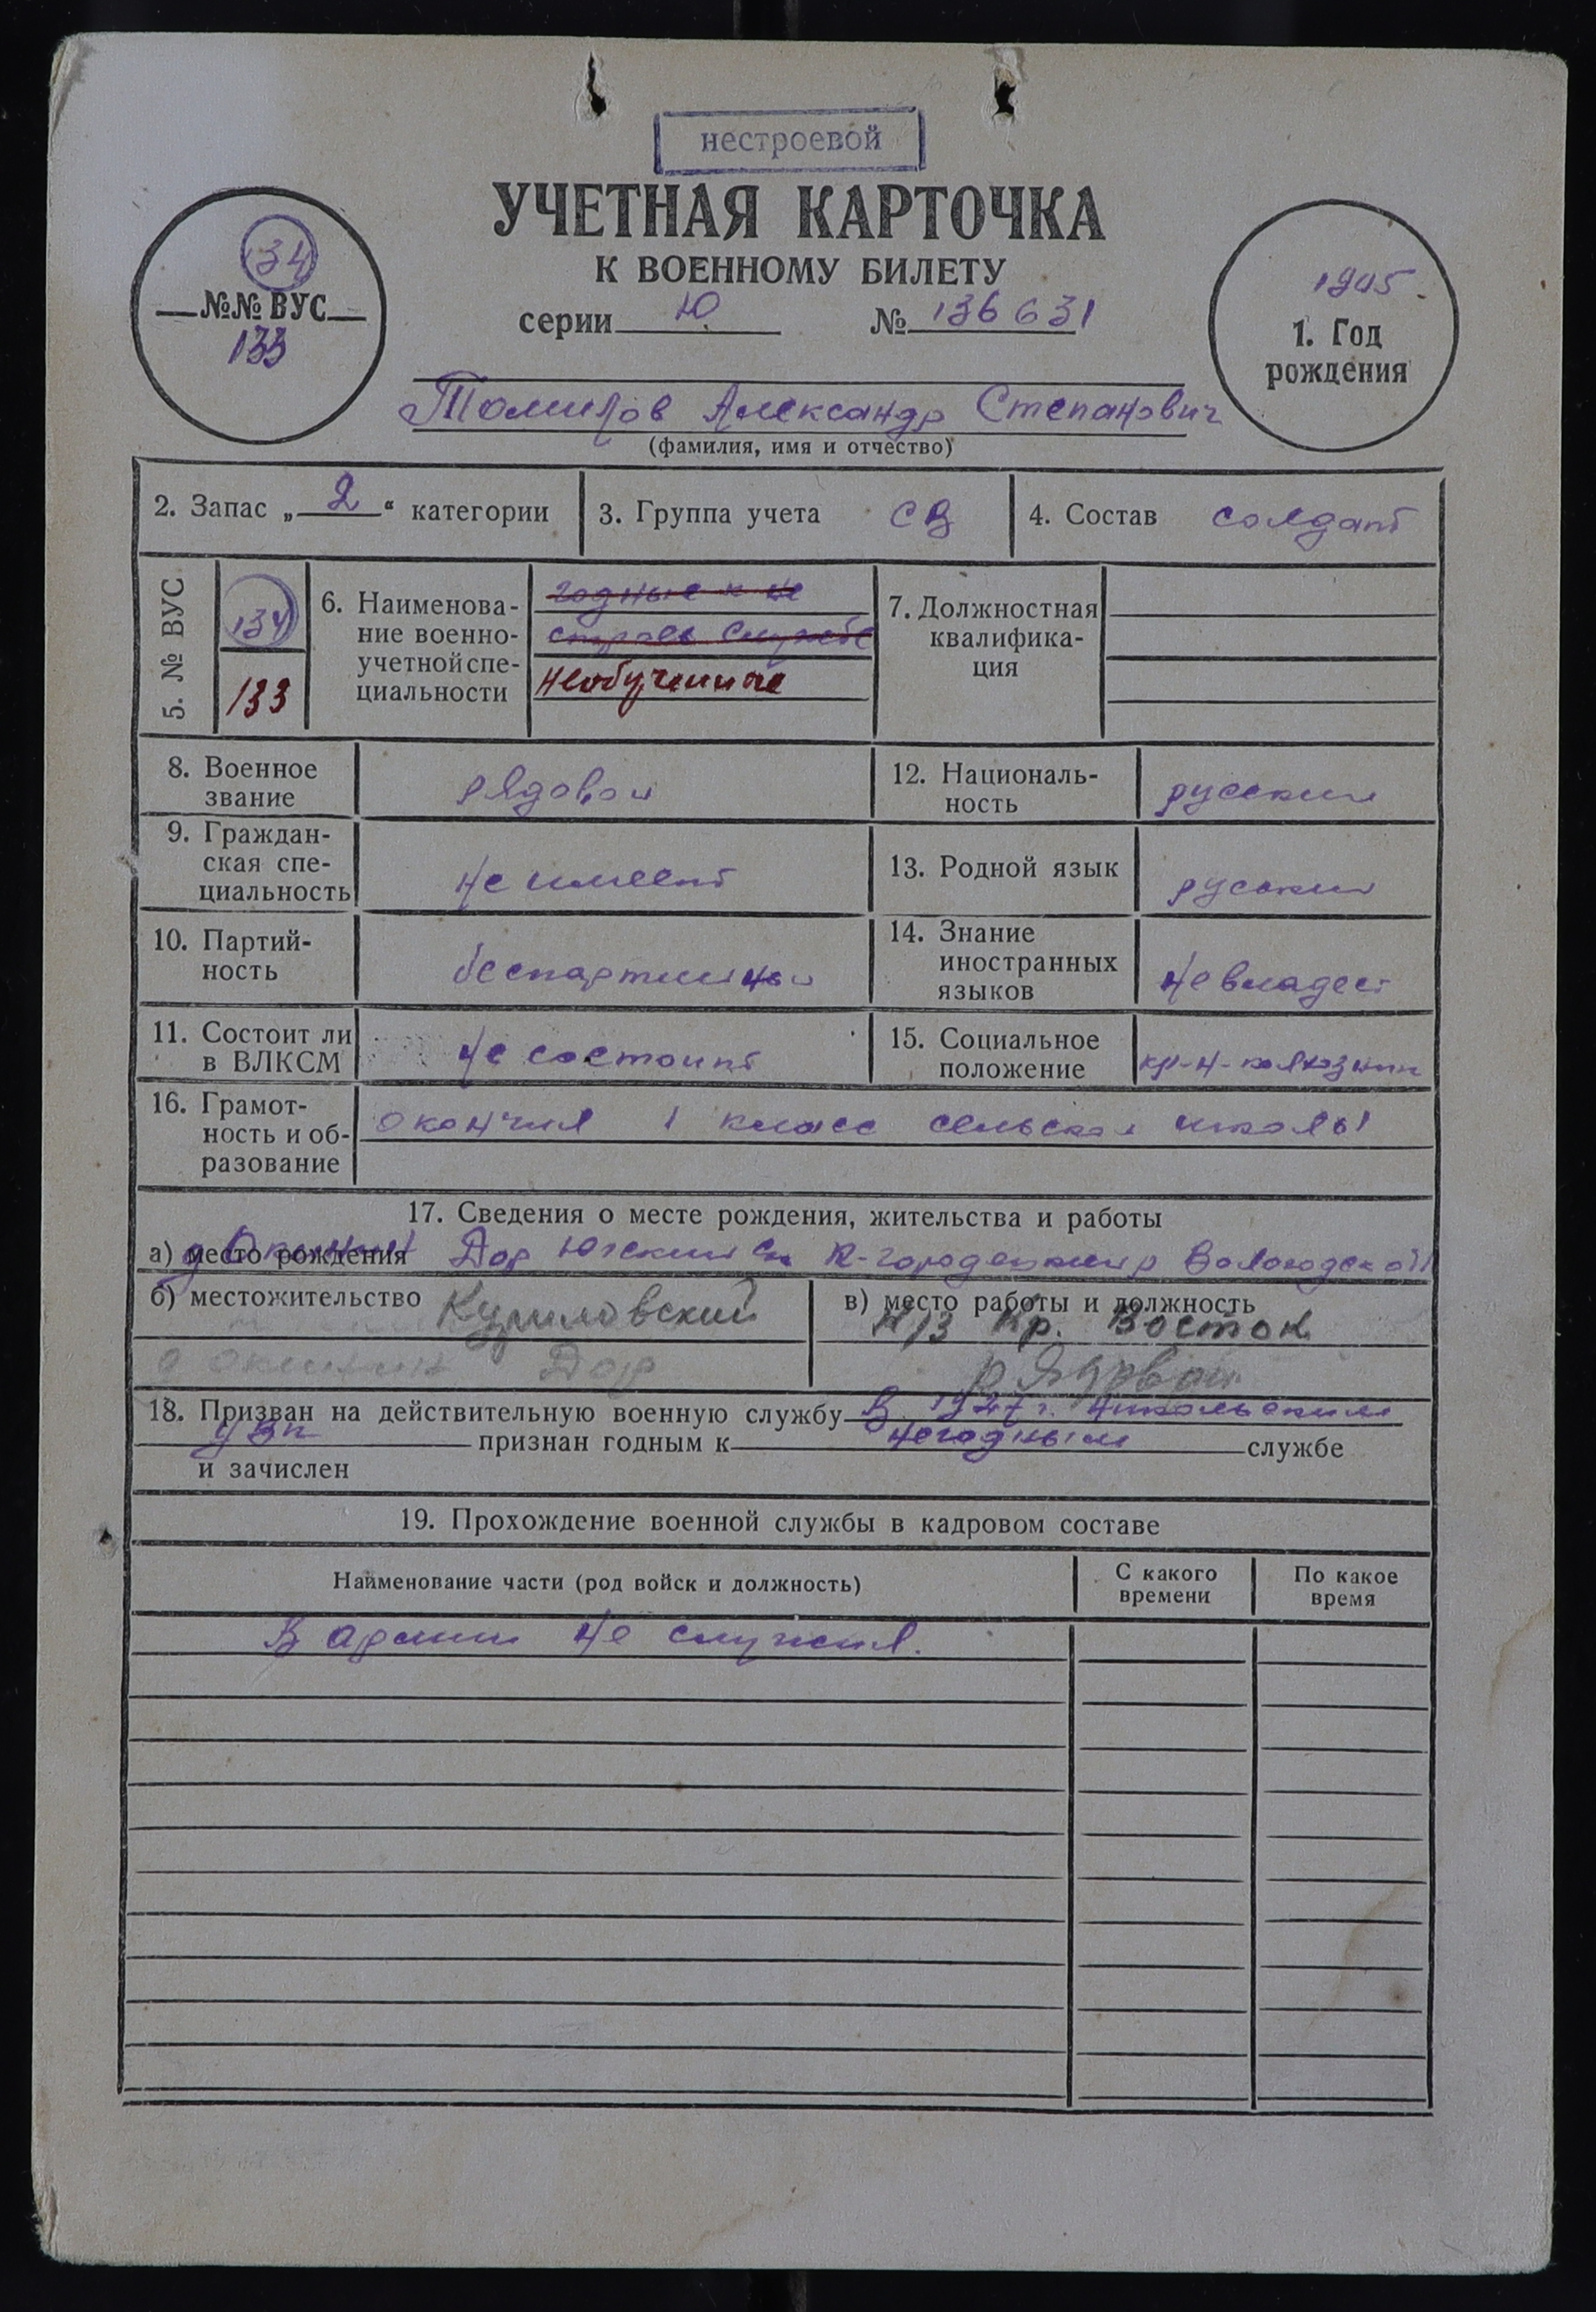 нестроевой
УЧЕТНАЯ КАРТОЧКА
К ВОЕННОМУ БИЛЕТУ
серии Ю № 136631
134
№№ ВУС
133
1905.
1. Год
рождения
Томилов Александр Степанович
(фамилия, имя и отчество)
2. Запас „ 2 “ категории
3. Группа учета СВ
4. Состав солдат
5. № ВУС
134
133
6. Наименова-
ние военно-
учетной спе-
циальности
годные к не
строев службе
необученные
7. Должностная
квалифика-
ция
8. Военное
звание
рядовой
12. Националь-
ность
русский
9. Граждан-
ская спе-
циальность
не имеет
13. Родной язык
русский
10. Партий-
ность
беспартийный
14. Знание
иностранных
языков
не владеет
11. Состоит ли
в ВЛКСМ
не состоит
15. Социальное
положение
кр-н-колхозник
16. Грамот-
ность и об-
разование
окончил 1 класс сельской школы
17. Сведения о месте рождения, жительства и работы
а) место рождения Дор К-городецкий р Вологодской
б) местожительство Куриловский
Дор
в) место работы и должность
К/з Кр. Восток
18. Призван на действительную военную службу В 1927 г. Никольским
признан годным к негодным службе
и зачислен
19. Прохождение военной службы в кадровом составе
Наименование части (род войск и должность)
С какого
времени
По какое
время
В армии не служил.